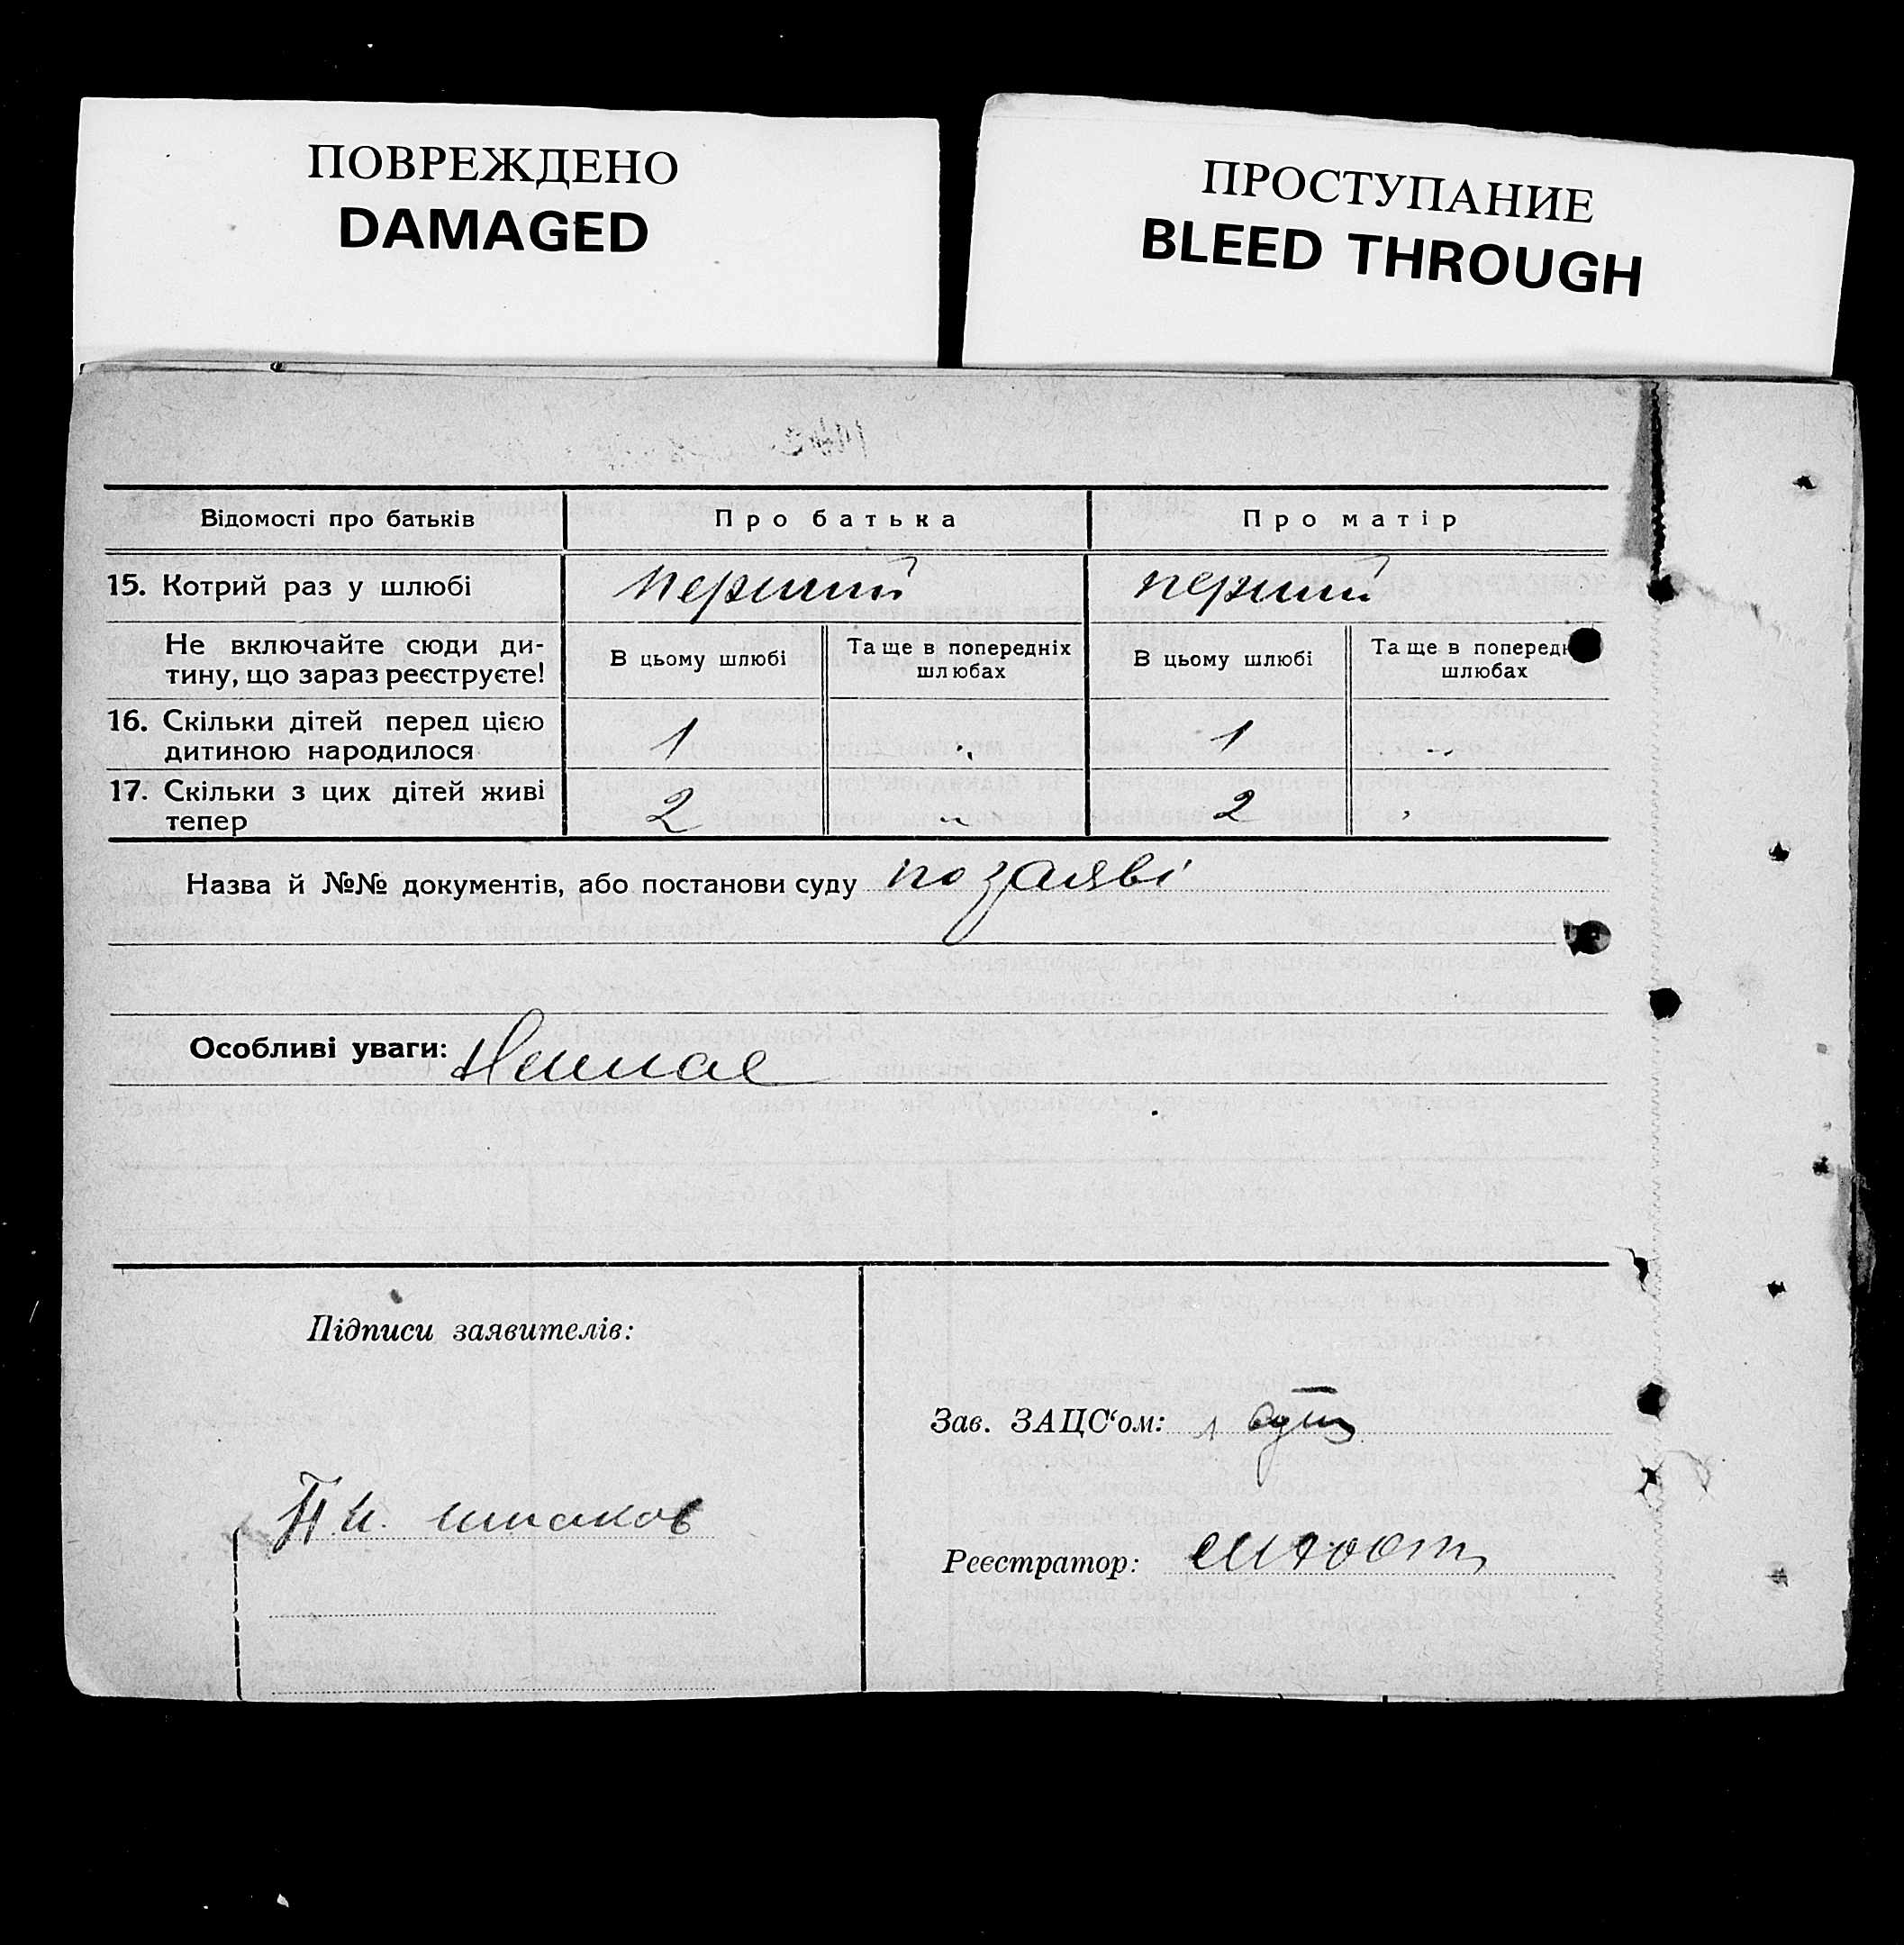 ПОВРЕЖДЕНО
DAMAGED
ПРОСТУПАНИЕ
BLEED THROUGH
Відомості про батьків Про батька Про матір
15. Котрий раз у шлюбі перший перший
Не включайте сюди ди-
тину, що зараз реєструєте!
В цьому шлюбі
Та ще в попередніх
шлюбах
В цьому шлюбі
Та ще в поперед
шлюбах
16. Скільки дітей перед цією
дитиною народилося 1 1
17. Скільки з цих дітей живі
тепер 2 2
Назва й №№ документів, або постанови суду по заяві
Особливі уваги: Немає
Підписи заявителів:
Зав. ЗАЦС‘ом:
Реєстратор: